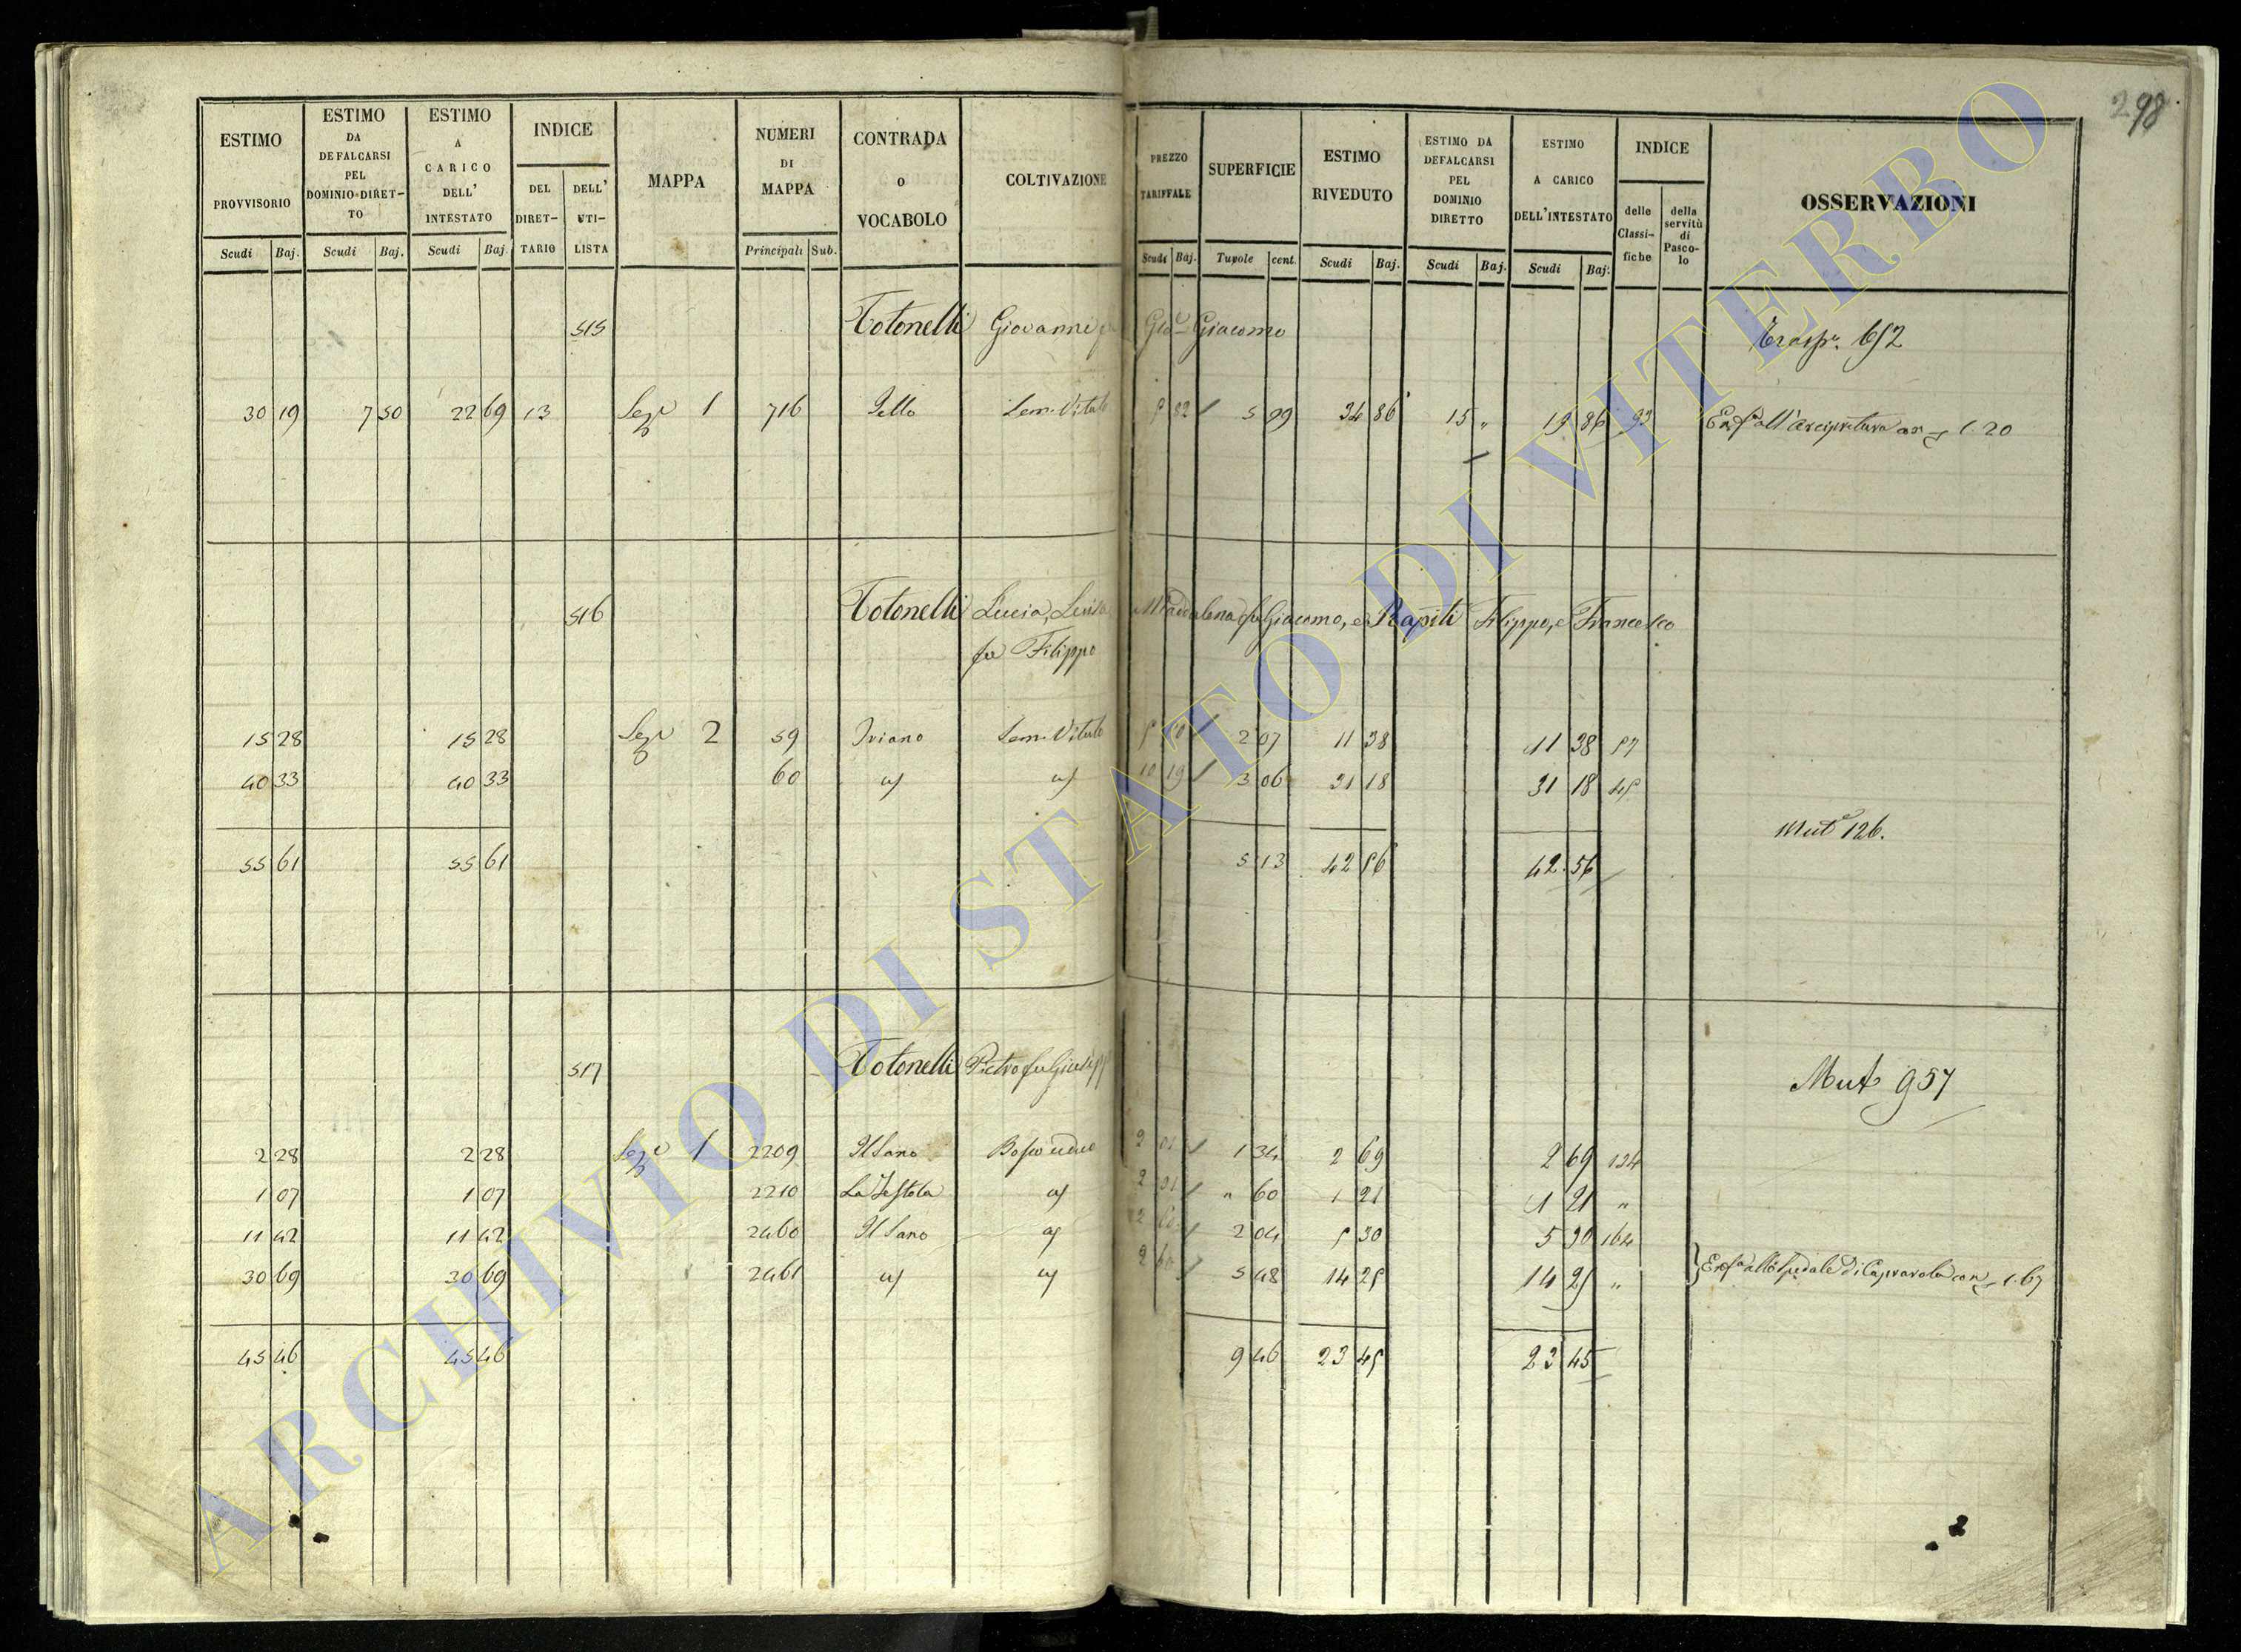 298
ESTIMO PROVVISORIO
ESTIMO DA DEFALCARSI PEL DOMINIO DIRET-TO
ESTIMO A CARICO DELL' INTESTATO
INDICE
DEL DIRET-TARIO
DELL' UTI-LISTA
MAPPA
NUMERI DI MAPPA
CONTRADA O VOCABOLO
COLTIVAZIONE
PREZZO TARIFFALE
SUPERFICIE
ESTIMO RIVEDUTO
ESTIMO DA DEFALCARSI PEL DOMINIO DIRETTO
ESTIMO A CARICO DELL'INTESTATO
INDICE
delle Classi-fiche
della servitù di Pasco-lo
OSSERVAZIONI
Scudi Baj. Scudi Baj. Scudi Baj. Principali Sub. Scudi Baj. Tavole cent. Scudi Baj. Scudi Baj. Scudi Baj.
515 Totonelli Giovanni Giacomo
652
30 19 7 50 22 69 13 Sez.e 1 716 Sem. Vitato 5 82 5 99 34 86 15 " 19 86 93 all'Arcipretura 1.20
516 Totonelli Lucia, Luisa, Maddalena fu Giacomo, e Rapiti Filippo, e Francesco
fu Filippo
15 28 15 28 Sez.e 2 59 Sem. Vitato 2 07 11 38 11 38 57
40 33 40 33 60 10 19 3 06 31 18 31 18 45
Mut.e 126.
55 61 55 61 5 13 42 56 42.56
517 Totonelli Pietro fu Giuseppe
Mut.e 957
2 28 2 28 Sez.e 1 2209 Il Sano Bosco ceduo 2 01 1 34 2 69 2 69 134
1 07 1 07 2210 2 01 " 60 1 21 1 21 "
11 42 11 42 2460 Il Sano 2 60 2 04 5 30 5 30 164
30 69 30 69 2461 2 60 5 48 14 25 14 25 " all'Ospedale di Caprarola 1.67
45 46 45 46 9 46 23 45 23 45
ARCHIVIO DI STATO DI VITERBO